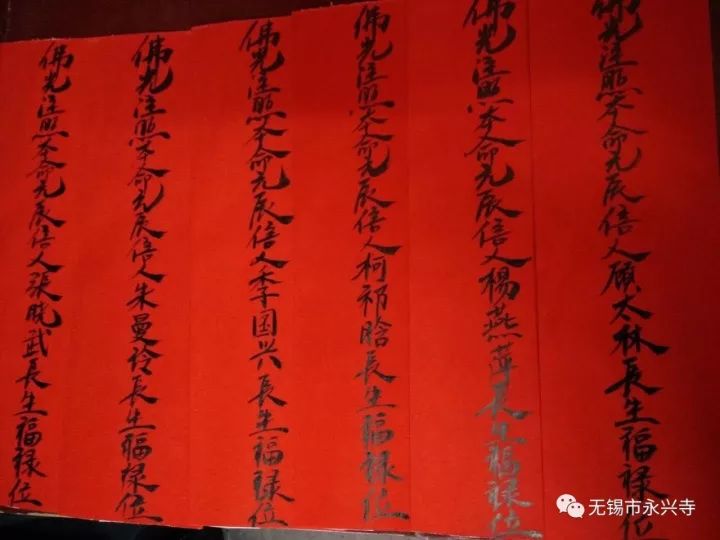 佛光注照本命元辰信人顾太林長生福禄位
佛光注照本命元辰信人楊燕萍長生福禄位
佛光注照本命元辰信人柯祁晗長生福禄位
佛光注照本命元辰信人季国兴長生福禄位
佛光注照本命元辰信人朱曼玲長生福禄位
佛光注照本命元辰信人張晓武長生福禄位
无锡市永兴寺